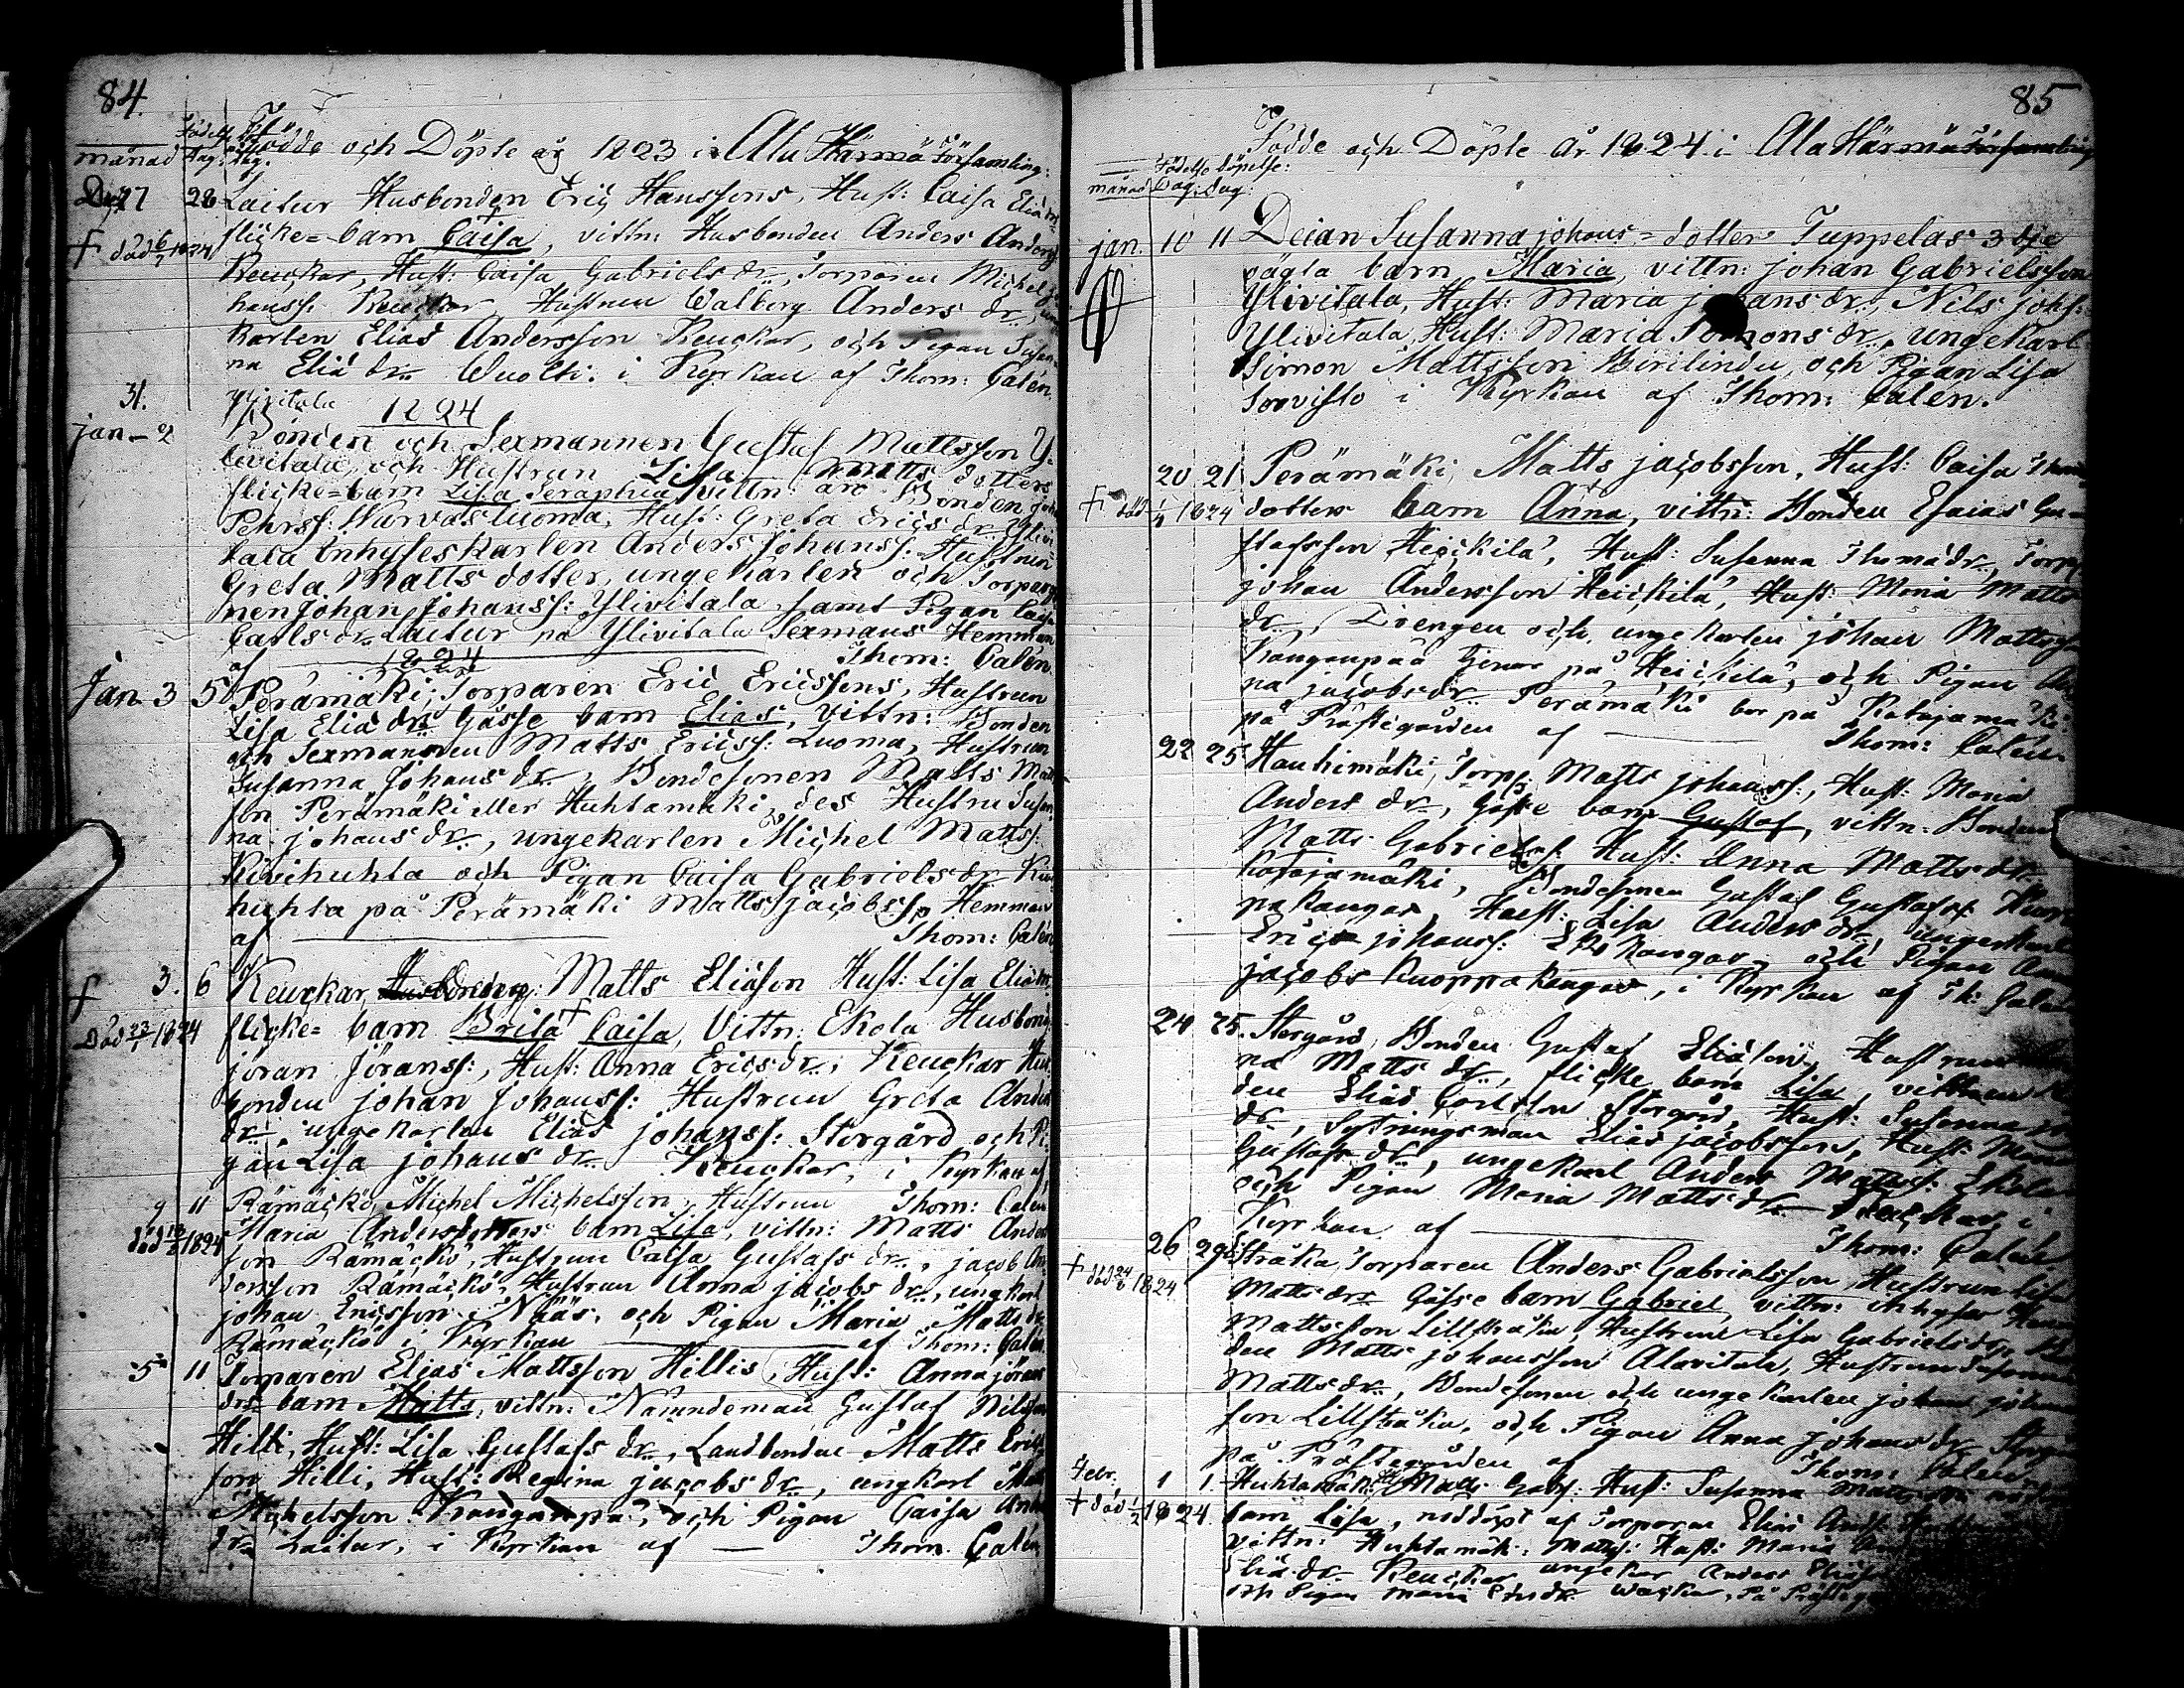 84.
Födde och Döpte år 1823 i Ala Härmä Församling:
månad dag: dag.
27 28 Laitur Husbonden Eric Hanssons, Hust: Caisa Eliä dr
flicke=barn Caisa, vittn: Husbonden Anders Anders
† död 6/7 1824
Keuckar, Hust: Caisa Gabriels dr, Torparen Michel
hanss. Keuckar Hustrun Walborg Anders dr,
karlen Elias Andersson Keuckar, och Pigan Susan
na Eliä dr Wuolti. i Kyrkan af Thom: Calén.
31.
Ylivitala
1824
jan - 2
Bonden och Sexmannen Gustaf Mattsson Y-
livitala, och Hustrun Lisa Matts dotters
flicke=barn Lisa Seraphia, vittn: äro Bonden
Pehrss: Warvasluoma, Hust: Greta Erics dr Ylivi
tala Inhyseskarlen Anders Johanss: Hustrun
Greta Matts dotter, ungekarlen och Torpare
nen Johan Johanss: Ylivitala, samt Pigan Caisa
Carls dr Laitur på Ylivitala Sexmans Hemman
af Thom: Calén
1824
Jan 3 5 Perämäki; Torparen Eric Ericssons, Hustrun
Lisa Eliä dr Gåsse barn Elias, vittn: Bonden
och Sexmannen Matts Ericss: Luoma, Hustrun
Susanna Johans dr, Bondesonen Matts Matts
son Perämäki eller Huhtamäki, des Hustru Susan
na johans dr, ungekarlen Michel Matts:
Kivihuhta och Pigan Caisa Gabriels dr Kivi
huhta på Perämäki Matts Jacobss Hemman
af Thom: Calén
† 3. 6 Keuckar, Matts Eliäson Hust: Lisa Eliä dr,
flicke= barn Brita Caisa, Vittn: Ekola Husbond
Död 23/1 1824
jöran Jöranss:, Hust: Anna Erics dr, Keuckar Hus
bonden johan Johanss: Hustrun Greta Anders
dr, ungekarlen Elias johanss: Storgård, och Pi
gan Lisa johans dr Keuckar, i Kyrkan af
9 11 Rämäckö, Michel Michelsson, Hustrun Thom: Calén
Maria Andersdotters barn Lisa, vittn: Matts Anders
son Rämäckö, Hustrun Caisa Gustafs dr, jacob An
dersson Rämäckö, Hustrun Anna jacobs dr, ungkarl
johan Ericsson Nääs, och Pigan Maria Matts dr
Rämäckö i Kyrkan af Thom: Calén
5 11 Torparen Elias Mattsson Hillis, Hust: Anna jörans
drs barn Matts, vittn: Nämndeman Gustaf Nilsson
Hilli, Hust: Lisa Gustafs dr, Landbonden Matts Erics
son Hilli, Hust: Regina jacobs dr, ungkarl
Michelsson Kangaspä, och Pigan Caisa Anders
dr Laitur, i Kyrkan af Thom. Calén,
85
Födde och Döpte År 1824 i Ala Härmä Församling
Födelse döpelse:
månad Dag: dag:
jan. 10 11 Deian Susanna johans=dotter Tuppelas 3
oägta barn Maria, vittn: johan Gabrielsson
Ylivitala, Hust: Maria johans dr, Nils johs:
Ylivitala, Hust: Maria Simons dr, ungekarl
Simon Mattsson Birilindu, och Pigan Lisa
Sorvisto i Kyrkan af Thom: Calén.
20 21 Perämäki, Matts jacobsson, Hust: Caisa Thom
† död 1/4 1824 dotters barn Anna, vittn: Bonden Esaias Gu-
stafsson Heickilä, Hust: Susanna Thomä dr, Torp
johan Andersson Heickilä, Hust: Maria Matts
dr, Drengen och ungekarlen johan Mattsson
Kangaspää tjenar på Heickilä, och Pigan An
na jacobs dr Perämäki bor på Katajamäki
på Prästegården af Thom: Calén.
22 25 Hauhimäki, Torp: Matts johanss:, Hust: Maria
Anders dr, Gåsse barn Gustaf, vittn: Bonden
Matts Gabrielss: Hust: Anna Matts dr
Katajamäki, Bondesonen Gustaf Gustafss Kuop
pakangas, Hust: Lisa Anders dr, ungekarl
Eric johanss: kangas, och Pigan Anna
jacobs Kuoppakangas, i Kyrkan af Th: Calén
24 25. Storgård, Bonden Gustaf Eliäson, Hustrun
na Matts dr, flicke barn Lisa, vittnen
den Elias Carlsson Storgård, Hust: Susanna
dr, Sytningsman Elias jacobsson, Hust: Maria
Gustafs dr, ungekarl Anders Mattss: Ekola
och Pigan Maria Matts dr Keuckar, i
Kyrkan af Thom: Calén.
26 29 Stråka, Torparen Anders Gabrielsson, Hustrun Lisa
† död 24/6 1824
Matts drs Gåsse barn Gabriel, vittn: inhyses
Mattsson Lillstråka, Hustrun Lisa Gabriels dr, Bo
den Matts johansson Alavitala, Hustrun Susanna
Matts dr, Bondesonen och ungekarlen johan johans
son Lillstråka, och Pigan Anna johans dr
på Prästegården af Thom: Calén.
Febr. 1 1 Huhtamäki, Matts Gabs: Hust: Susanna Matts
† död 1/2 1824.
barn Lisa, nöddöpt af Torparen Elias
vittn: Huhtamäki, Mattss: Hust: Maria
Eliä dr Keuckar ungekar Anders
och Pigan Maria dr På Prästeg